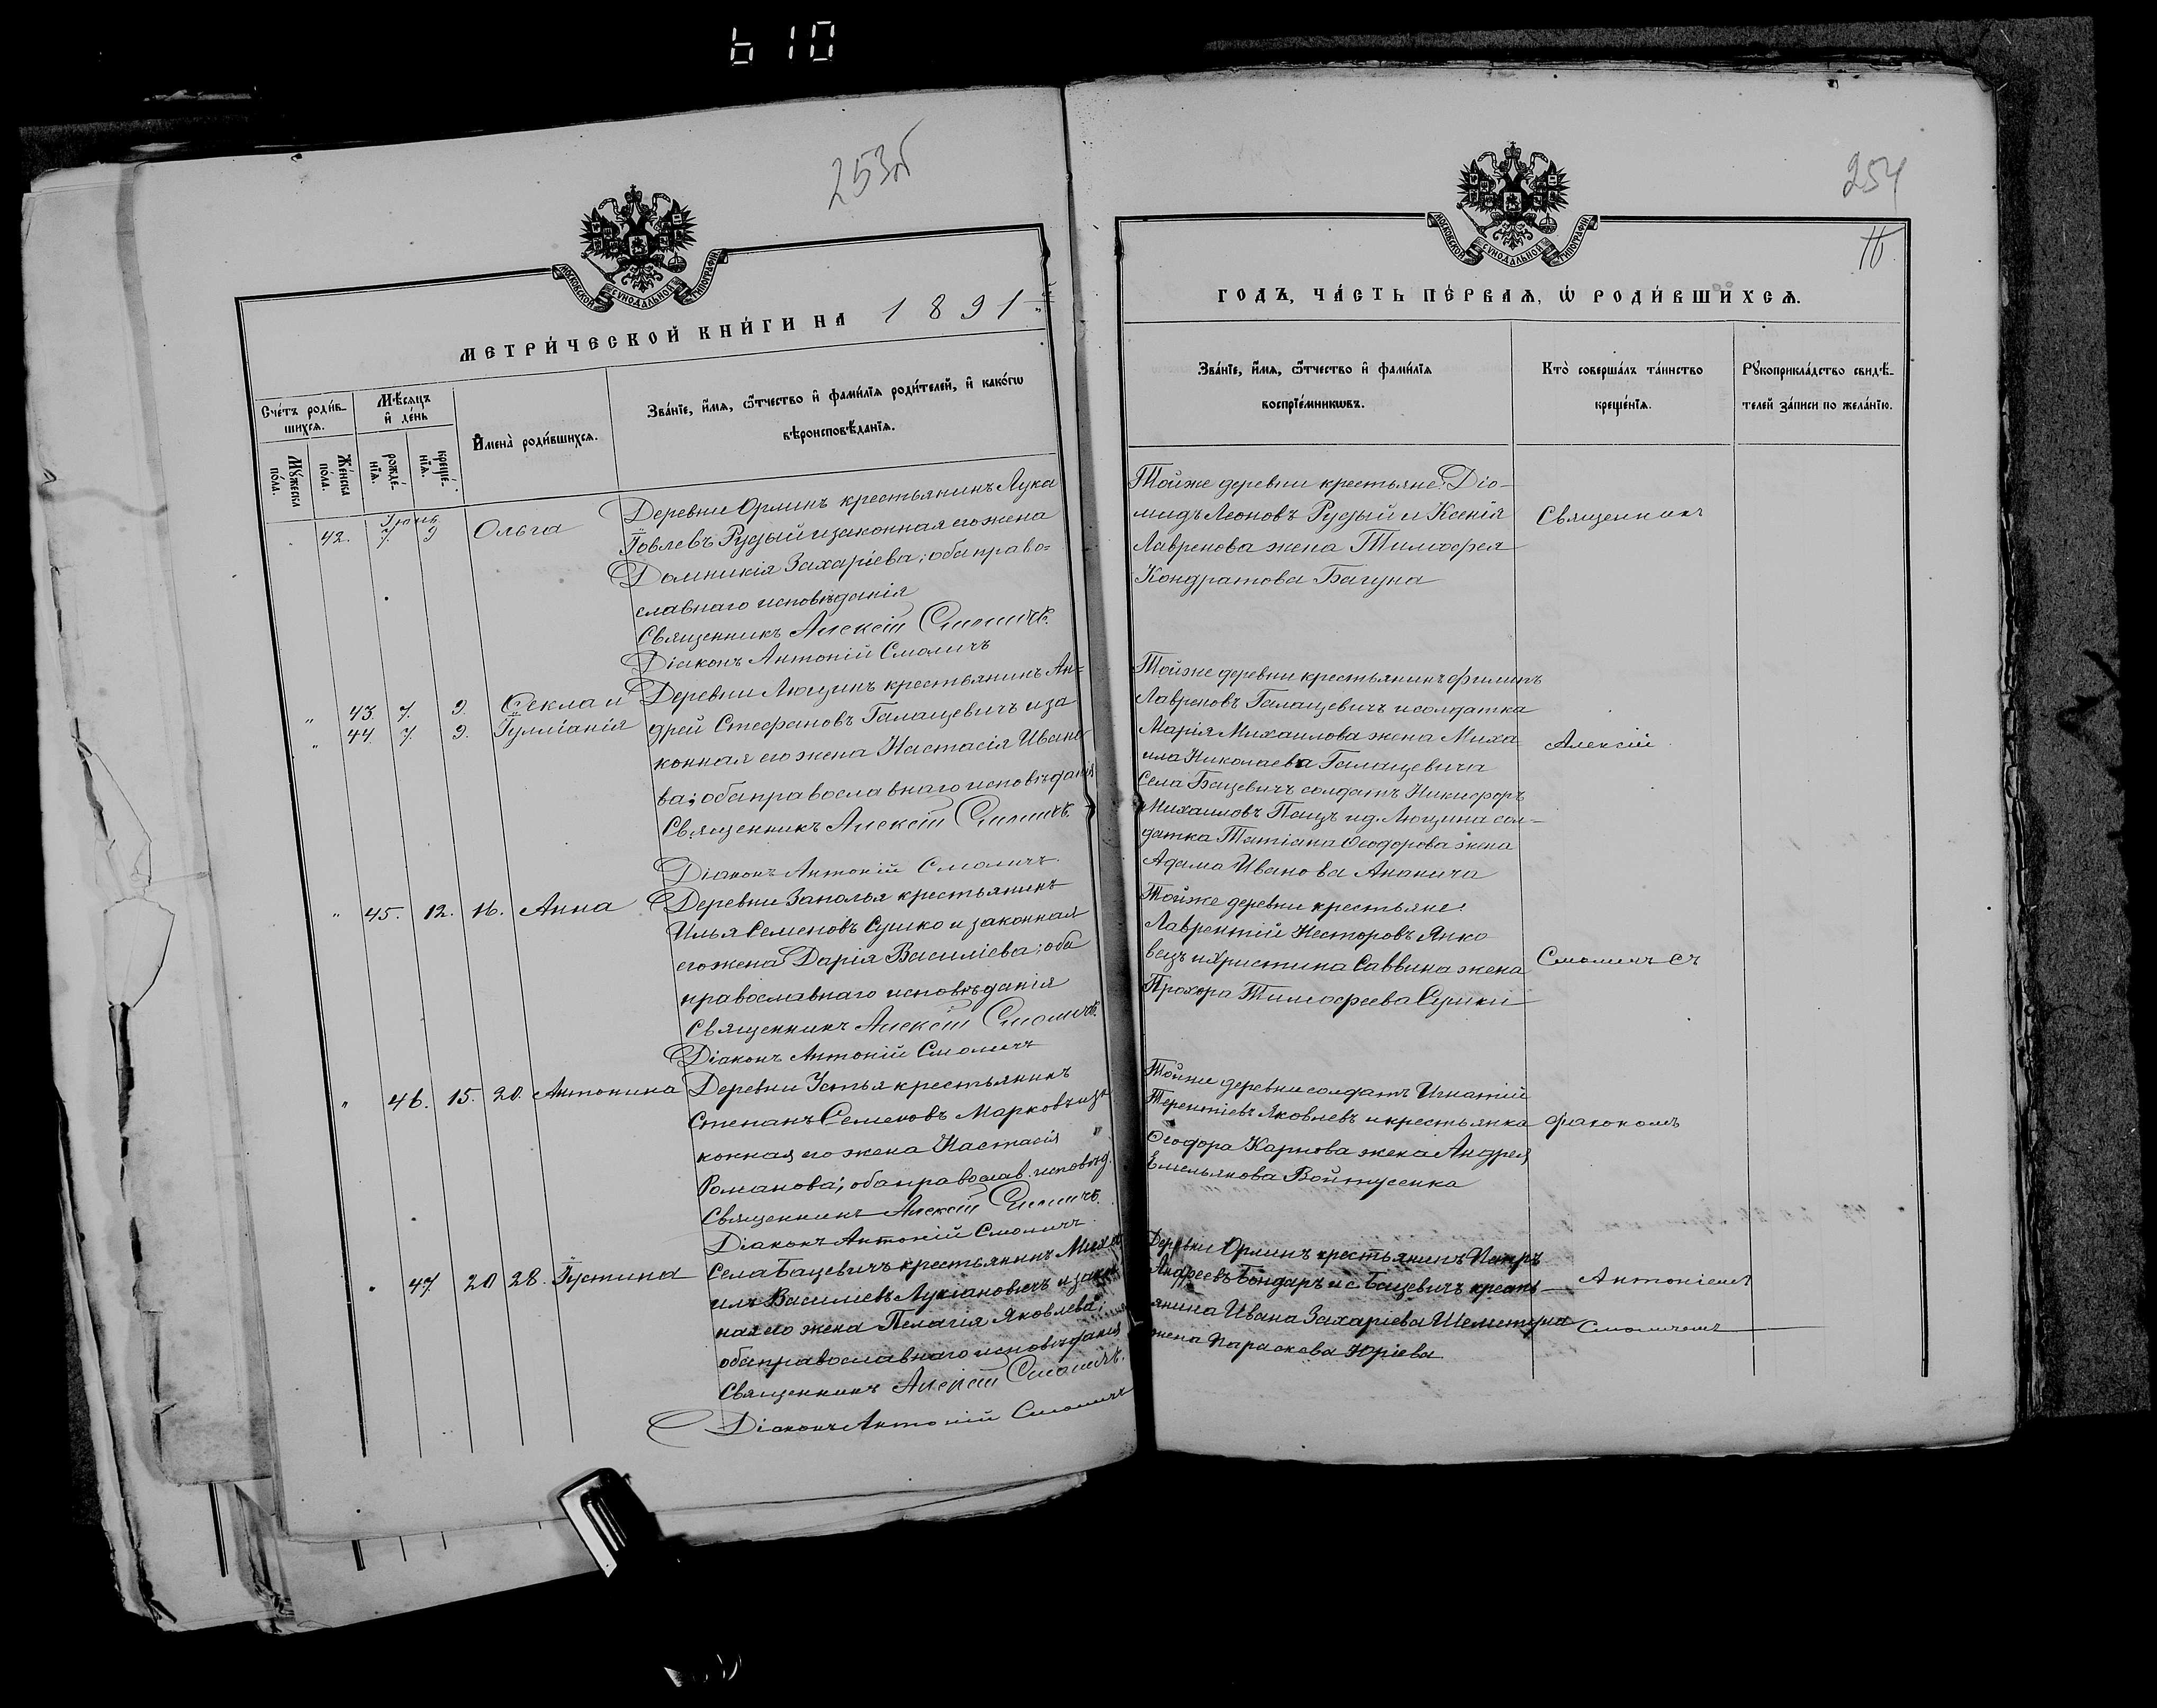 610
253б
МОСКОВСКОЙ СѴНОДАЛЬНОЙ ТИПОГРАФІИ
МЕТРИ́ЧЕСКОЙ КНИ́ГИ НА 1891
Сче́тъ роди́в-
шихсѧ.
Мѣ́сѧцъ
и҆ де́нь
И҆мена̀ роди́вшихсѧ.
Зва́нїе, и҆́мѧ, ѻ҆́тчество и҆ фами́лїѧ роди́телей, и҆ како́гѡ
вѣроисповѣ́данїѧ.
Мꙋ́жеска
по́ла.
Же́нска
по́ла.
рожде́-
нїѧ.
креще́-
нїѧ.
42. Іюнь 7. 9 Ольга
Деревни Орлинъ крестьянинъ Лука
Іовлевъ Рудый и законная его жена
Домникія Захаріева; оба право=
славнаго исповѣданія
Священникъ Алексій Смоличъ.
Діаконъ Антоній Смоличъ
" 43. 7. 9. Ѳекла и
" 44. 7. 9. Іулліанія
Деревни Люцинъ крестьянинъ Ан=
дрей Стефановъ Галацевичъ и за
конная его жена Настасія Ивано
ва; оба православнаго исповѣданія
Священникъ Алексій Смоличъ.
Діаконъ Антоній Смоличъ.
" 45. 12. 16. Анна
Деревни Заполья крестьянинъ
Илья Семеновъ Сушко и законная
его жена Дарія Василіева; оба
православнаго исповѣданія
Священникъ Алексій Смоличъ.
Діаконъ Антоній Смоличъ
" 46. 15. 20. Антонина
Деревни Устья крестьянинъ
Степанъ Семеновъ Марковъ и за
конная его жена Настасія
Романова; оба православ. исповѣд.
Священникъ Алексій Смоличъ.
Діаконъ Антоній Смоличъ.
" 47. 20 28. Іустина
Села Бацевичъ крестьянинъ Миха
илъ Василіевъ Лукіановичъ и закон
ная его жена Пелагія Яковлева;
оба православнаго исповѣданія
Священникъ Алексій Смоличъ.
Діаконъ Антоній Смоличъ
254
МОСКОВСКОЙ СѴНОДАЛЬНОЙ ТИПОГРАФІИ
ГОДЪ, ЧА́СТЬ ПЕ́РВАѦ, Ѡ҆ РОДИ́ВШИХСѦ.
Зва́нїе, и҆́мѧ, ѻ҆́тчество и҆ фами́лїѧ
воспрїе́мникѡвъ.
Кто̀ соверша́лъ та́инство
креще́нїѧ.
Рꙋкоприкла́дство свидѣ́-
телей за́писи по жела́нїю.
Тойже деревни крестьяне: Діо-
мидъ Леоновъ Рудый и Ксенія
Лавренова жена Тимоѳея
Кондратова Багуна
Тойже деревни крестьянинъ Филипъ
Лавреновъ Галацевичъ и солдатка
Марія Михаилова жена Миха
ила Николаева Галацевича
Села Бацевичъ солдатъ Никифоръ
Михаиловъ Пацъ и д. Люцина сол-
датка Татіана Ѳеодорова жена
Адама Иванова Ананича
Тойже деревни крестьяне:
Лаврентій Несторовъ Янко
вецъ и Христина Саввина жена
Прохора Тимоѳеева Сушки
Тойже деревни солдатъ Игнатій
Терентіевъ Яковлевъ и крестьянка
Ѳеодора Карпова жена Андрея
Емельянова Войтусенка
Деревни Орлинъ крестьянинъ Петръ
Андреевъ Бондаръ и с. Бацевичъ кресть
янина Ивана Захаріева
жена Параскева Юріева
Священникъ
Алексій
Смоличъ съ
діакономъ
Антоніемъ
Смоличемъ